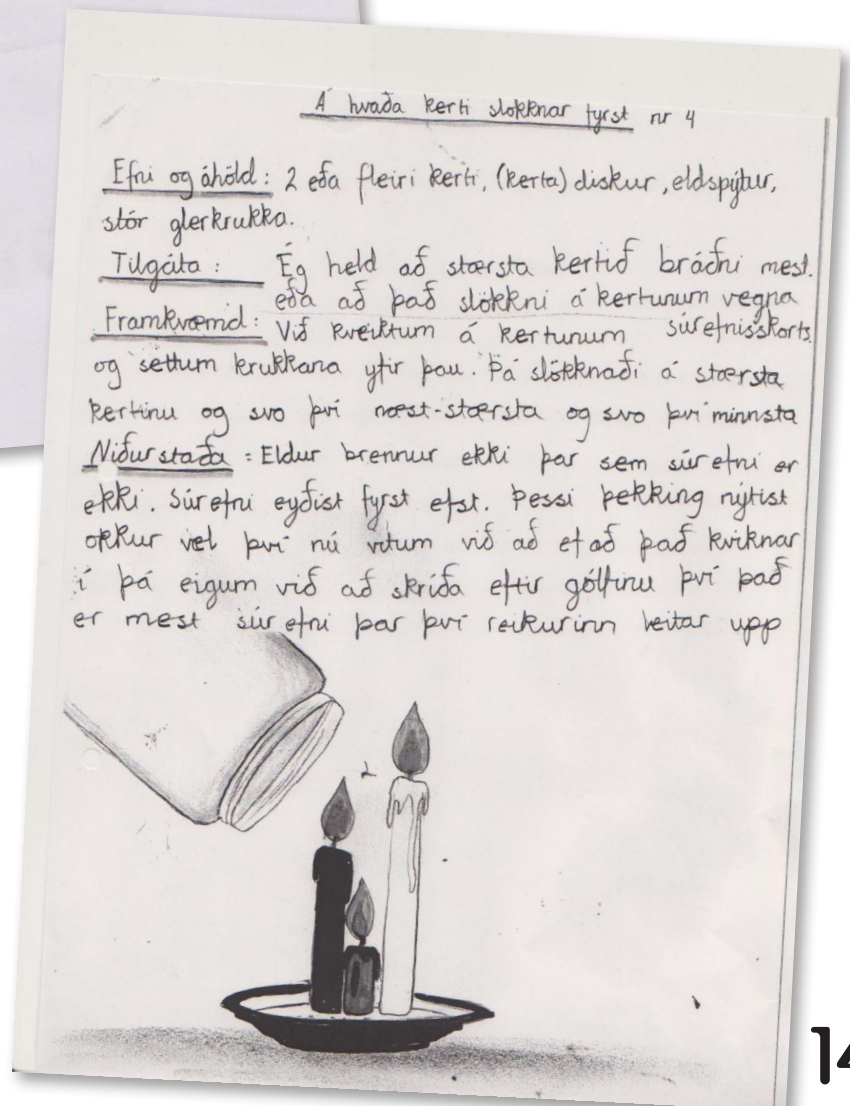 Á hvaða kerti slokknar fyrst nr 4
Efni og áhöld: 2 eða fleiri kerti, (kerta) diskur, eldspýtur,
stór glerkrukka.
Tilgáta: Ég held að stærsta kertið bráðni mest.
eða að það slökkni á kertunum vegna
súrefnisskorts.
Framkvæmd: Við kveiktum á kertunum
og settum krukkana yfir þau. Þá slökknaði á stærsta
kertinu og svo því næst-stærsta og svo því minnsta
Niðurstaða: Eldur brennur ekki þar sem súrefni er
ekki. Súrefni eyðist fyrst efst. Þessi þekking nýtist
okkur vel því nú vitum við að ef að það kviknar
í þá eigum við að skríða eftir gólfinu því það
er mest súrefni þar því reikurinn leitar upp
14